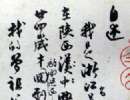 自述
我是浙江
在陕西汉中
廿四岁中国
我的曾祖